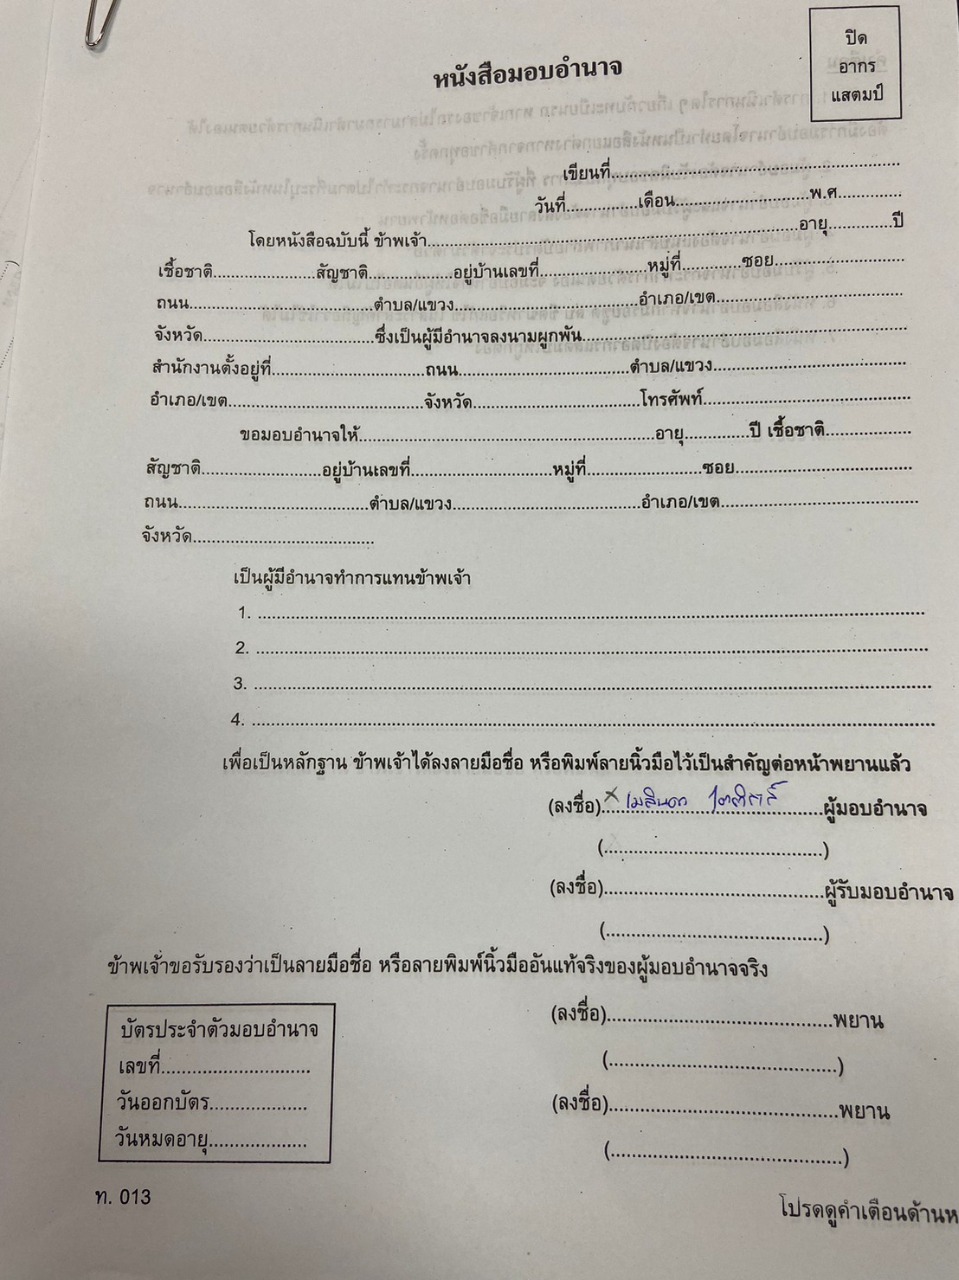 ปิด
อากร
แสตมป์
หนังสือมอบอำนาจ
เขียนที่..........................................................
วันที่...............เดือน...........................พ.ศ.............
โดยหนังสือฉบับนี้ ข้าพเจ้า..........................................................................อายุ.............ปี
เชื้อชาติ.....................สัญชาติ.................อยู่บ้านเลขที่......................หมู่ที่............ซอย..........................
ถนน.....................................ตำบล/แขวง.....................................อำเภอ/เขต.....................................
จังหวัด...................................ซึ่งเป็นผู้มีอำนาจลงนามผูกพัน................................................................
สำนักงานตั้งอยู่ที่...............................ถนน...................................ตำบล/แขวง.......................................
อำเภอ/เขต.......................................จังหวัด..................................โทรศัพท์..........................................
ขอมอบอำนาจให้............................................................อายุ.............ปี เชื้อชาติ.................
สัญชาติ........................อยู่บ้านเลขที่............................หมู่ที่.......................ซอย...................................
ถนน......................................ตำบล/แขวง......................................อำเภอ/เขต.......................................
จังหวัด.....................................
เป็นผู้มีอำนาจทำการแทนข้าพเจ้า
1. ........................................................................................................................................
2. ........................................................................................................................................
3. ........................................................................................................................................
4. ........................................................................................................................................
เพื่อเป็นหลักฐาน ข้าพเจ้าได้ลงลายมือชื่อ หรือพิมพ์ลายนิ้วมือไว้เป็นสำคัญต่อหน้าพยานแล้ว
(ลงชื่อ)..x เมลินดา ...........ผู้มอบอำนาจ
(............................................)
(ลงชื่อ)............................................ผู้รับมอบอำนาจ
(............................................)
ข้าพเจ้าขอรับรองว่าเป็นลายมือชื่อ หรือลายพิมพ์นิ้วมืออันแท้จริงของผู้มอบอำนาจจริง
(ลงชื่อ)............................................พยาน
(..............................................)
(ลงชื่อ)..............................................พยาน
(..............................................)
บัตรประจำตัวมอบอำนาจ
เลขที่..............................
วันออกบัตร....................
วันหมดอายุ....................
ท. 013
โปรดดูคำเตือนด้านห